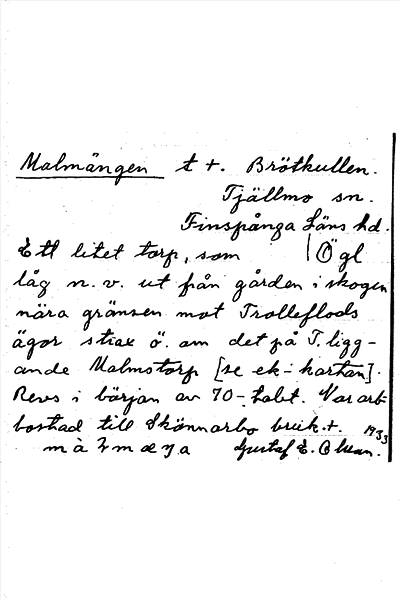 Malmängen t +. Brötkullen.
Tjällmo sn.
Finspånga Läns hd.
Ett litet torp, som Ögl
låg n. v. ut från gården i skogen
nära gränsen mot Trolleflods
ägor strax ö. om det på T. ligg-
ande Malmstorp [se ek-kartan].
Revs i början av 70-talet. Var arb-
bostad till Skönnarbo bruk. +. 1933
Gustaf E. Olsson.